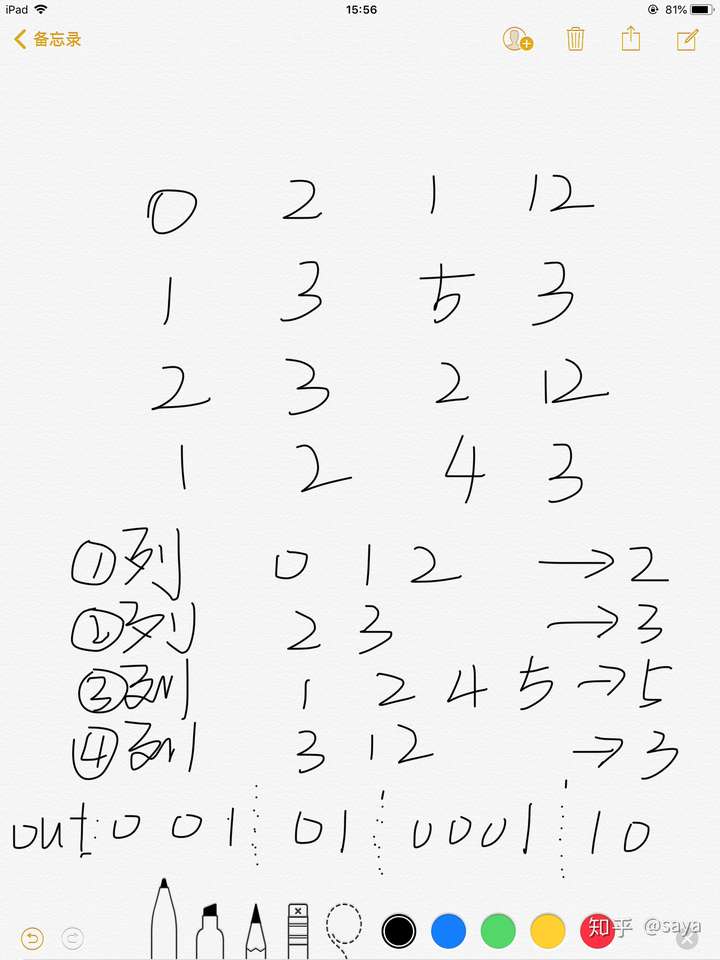 iPad 15:56 81%
备忘录
0 2 1 12
1 3 5 3
2 3 2 12
1 2 4 3
①列 0 1 2 →2
②列 2 3 →3
③列 1 2 4 5 →5
④列 3 12 →3
out: 0 0 1 0 1 0 0 0 1 1 0
知乎 @saya